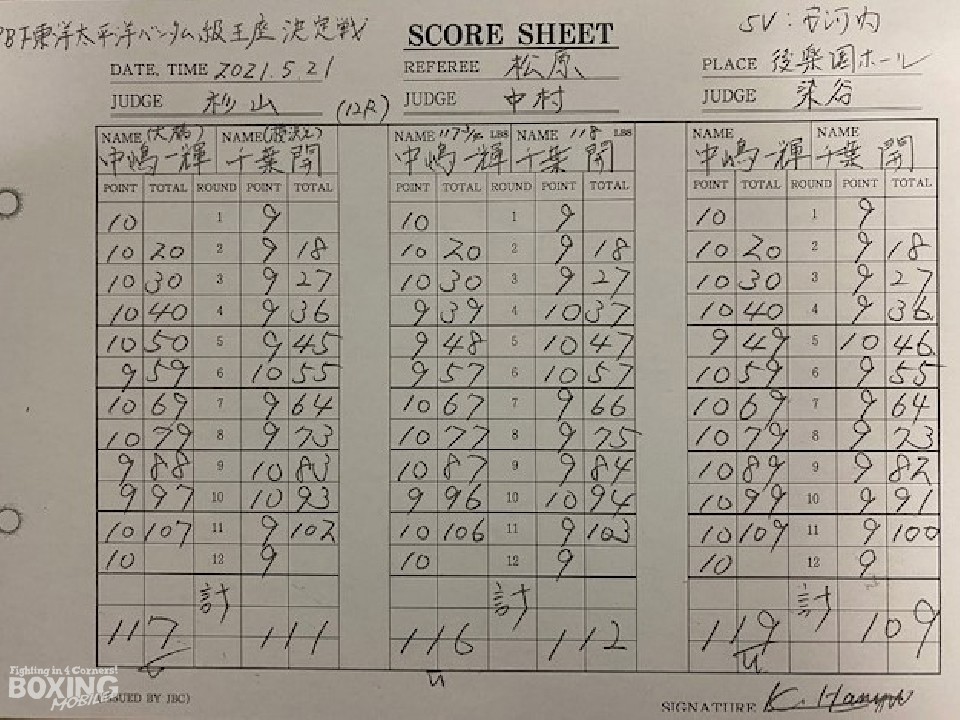 PBF東洋太平洋バンタム級王座決定戦
SCORE SHEET
SV:安河内
DATE, TIME 2021.5.21
REFEREE 松原
PLACE 後楽園ホール
JUDGE 杉山 (12R)
JUDGE 中村
JUDGE 染谷
NAME (大橋) NAME (横浜光) NAME 117 3/4 LBS NAME 118 LBS NAME NAME
中嶋一輝 千葉開 中嶋一輝 千葉開 中嶋一輝 千葉開
POINT TOTAL ROUND POINT TOTAL POINT TOTAL ROUND POINT TOTAL POINT TOTAL ROUND POINT TOTAL
10 1 9 10 1 9 10 1 9
10 20 2 9 18 10 20 2 9 18 10 20 2 9 18
10 30 3 9 27 10 30 3 9 27 10 30 3 9 27
10 40 4 9 36 9 39 4 10 37 10 40 4 9 36
10 50 5 9 45 9 48 5 10 47 9 49 5 10 46
9 59 6 10 55 9 57 6 10 57 10 59 6 9 55
10 69 7 9 64 10 67 7 9 66 10 69 7 9 64
10 79 8 9 73 10 77 8 9 75 10 79 8 9 73
9 88 9 10 83 10 87 9 9 84 10 89 9 9 82
9 97 10 10 93 9 96 10 10 94 10 99 10 9 91
10 107 11 9 102 10 106 11 9 103 10 109 11 9 100
10 12 9 10 12 9 10 12 9
計 計 計
117 111 116 112 119 109
Fighting in 4 Corners!
BOXING
MOBILE
(ISSUED BY JBC)
SIGNATURE K. Hanyu